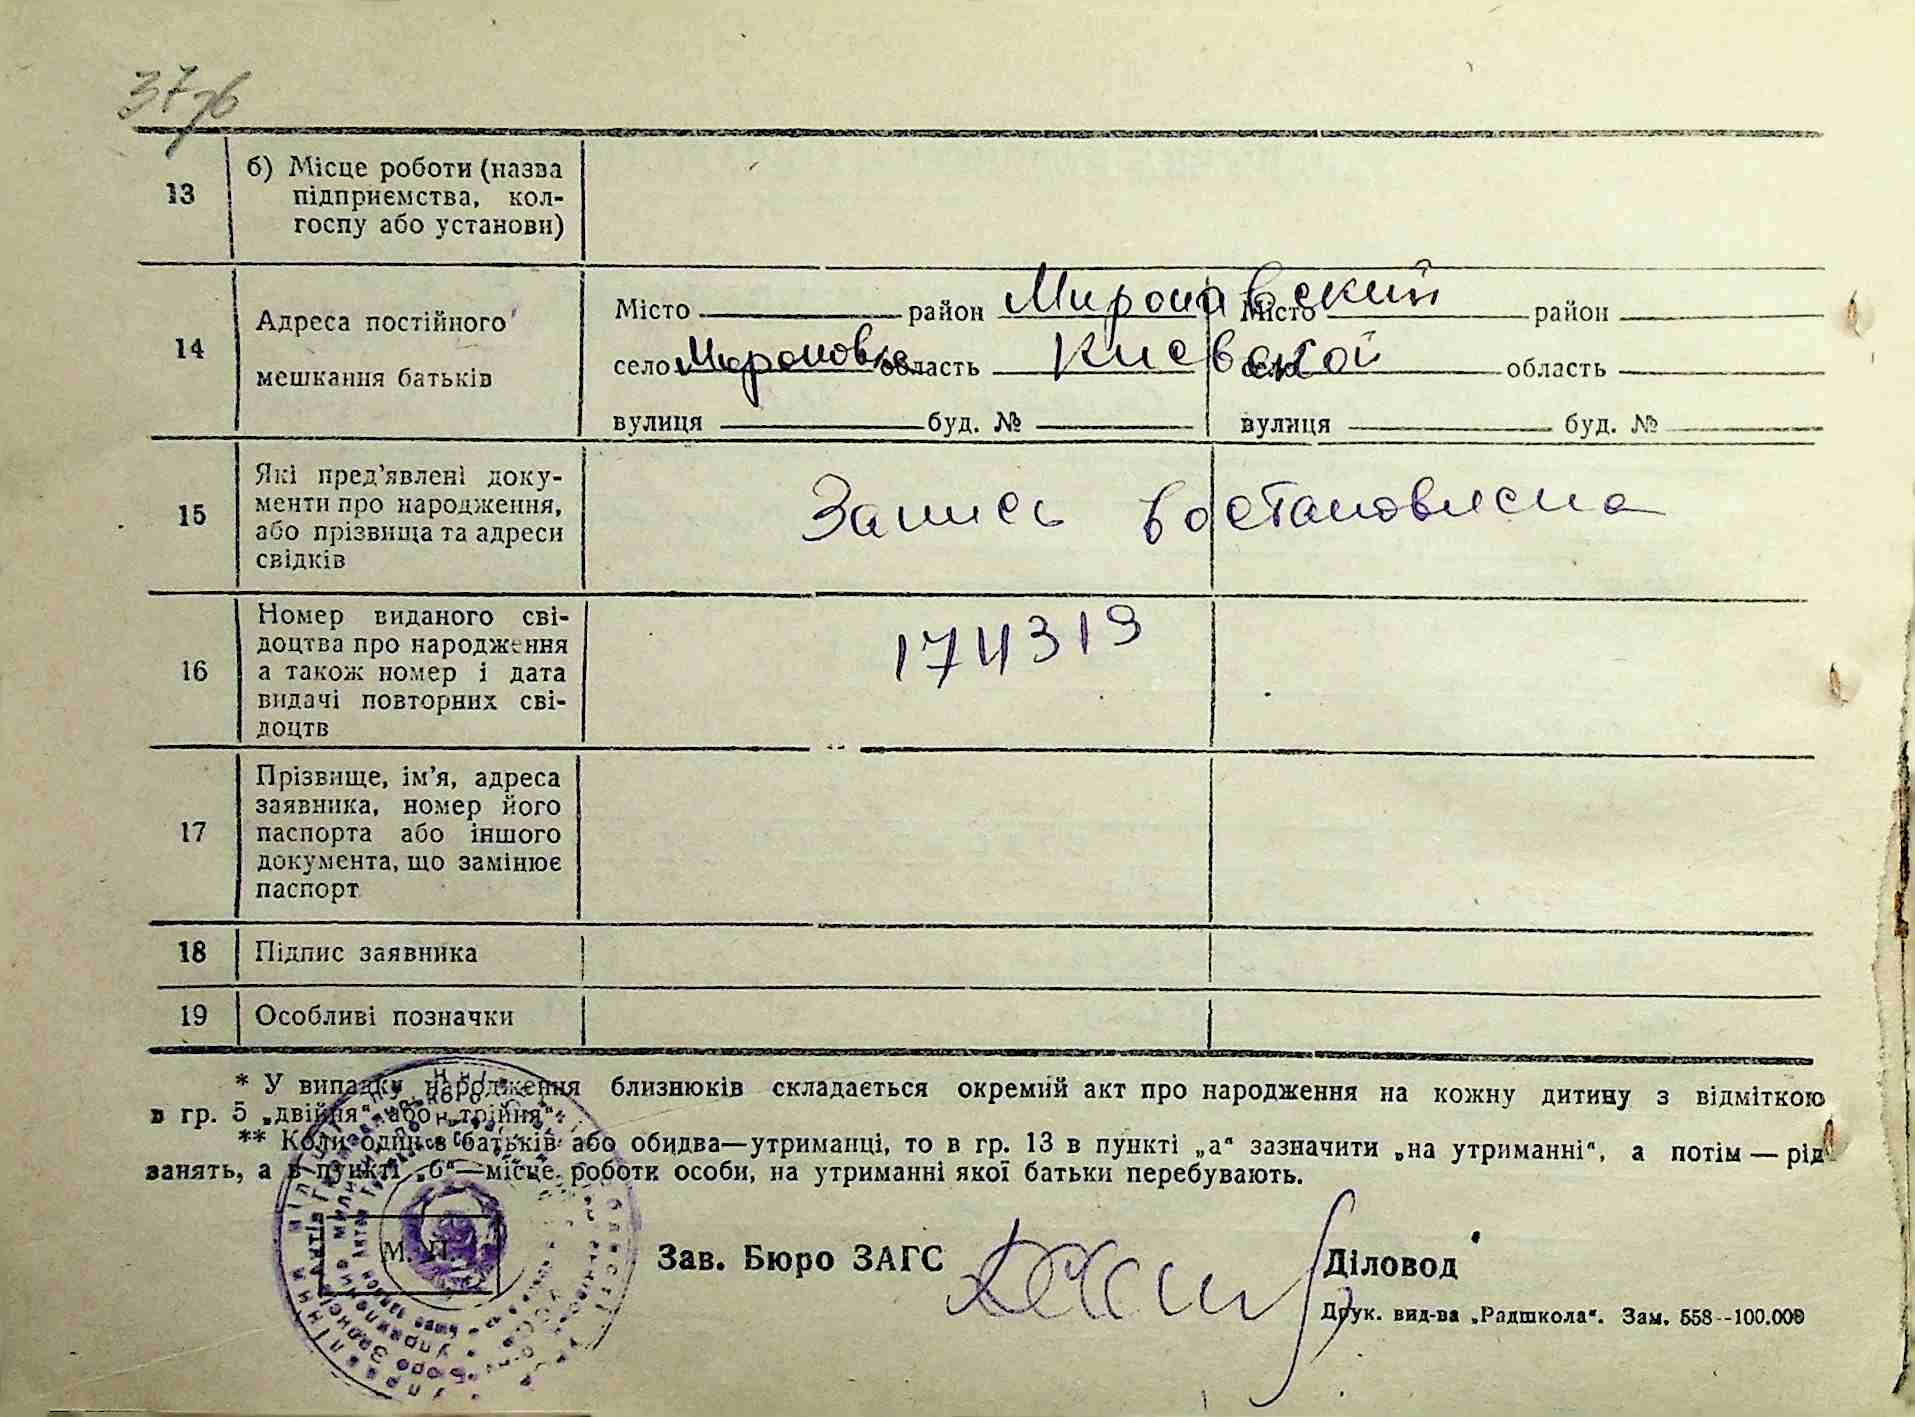 37зб
13
б) Місце роботи (назва
підприємства, кол-
госпу або установи)
14
Адреса постійного
мешкання батьків
Місто район Мироновский Місто район
село Мироновка область Киевской село область
вулиця буд. № вулиця буд. №
15
Які пред'явлені доку-
менти про народження,
або прізвища та адреси
свідків
Запись востановлена
16
Номер виданого сві-
доцтва про народження
а також номер і дата
видачі повторних сві-
доцтв
174319
17
Прізвище, ім'я, адреса
заявника, номер його
паспорта або іншого
документа, що замінює
паспорт
18 Підпис заявника
19 Особливі позначки
* У випадку народження близнюків складається окремий акт про народження на кожну дитину з відміткою
в гр. 5 „двійня“ або „трійня“.
** Коли один з батьків або обидва—утриманці, то в гр. 13 в пункті „а“ зазначити „на утриманні“, а потім — рід
занять, а в пункті „б“—місце роботи особи, на утриманні якої батьки перебувають.
М. П.
Зав. Бюро ЗАГС Діловод
Друк. вид-ва „Радшкола“. Зам. 558--100.000